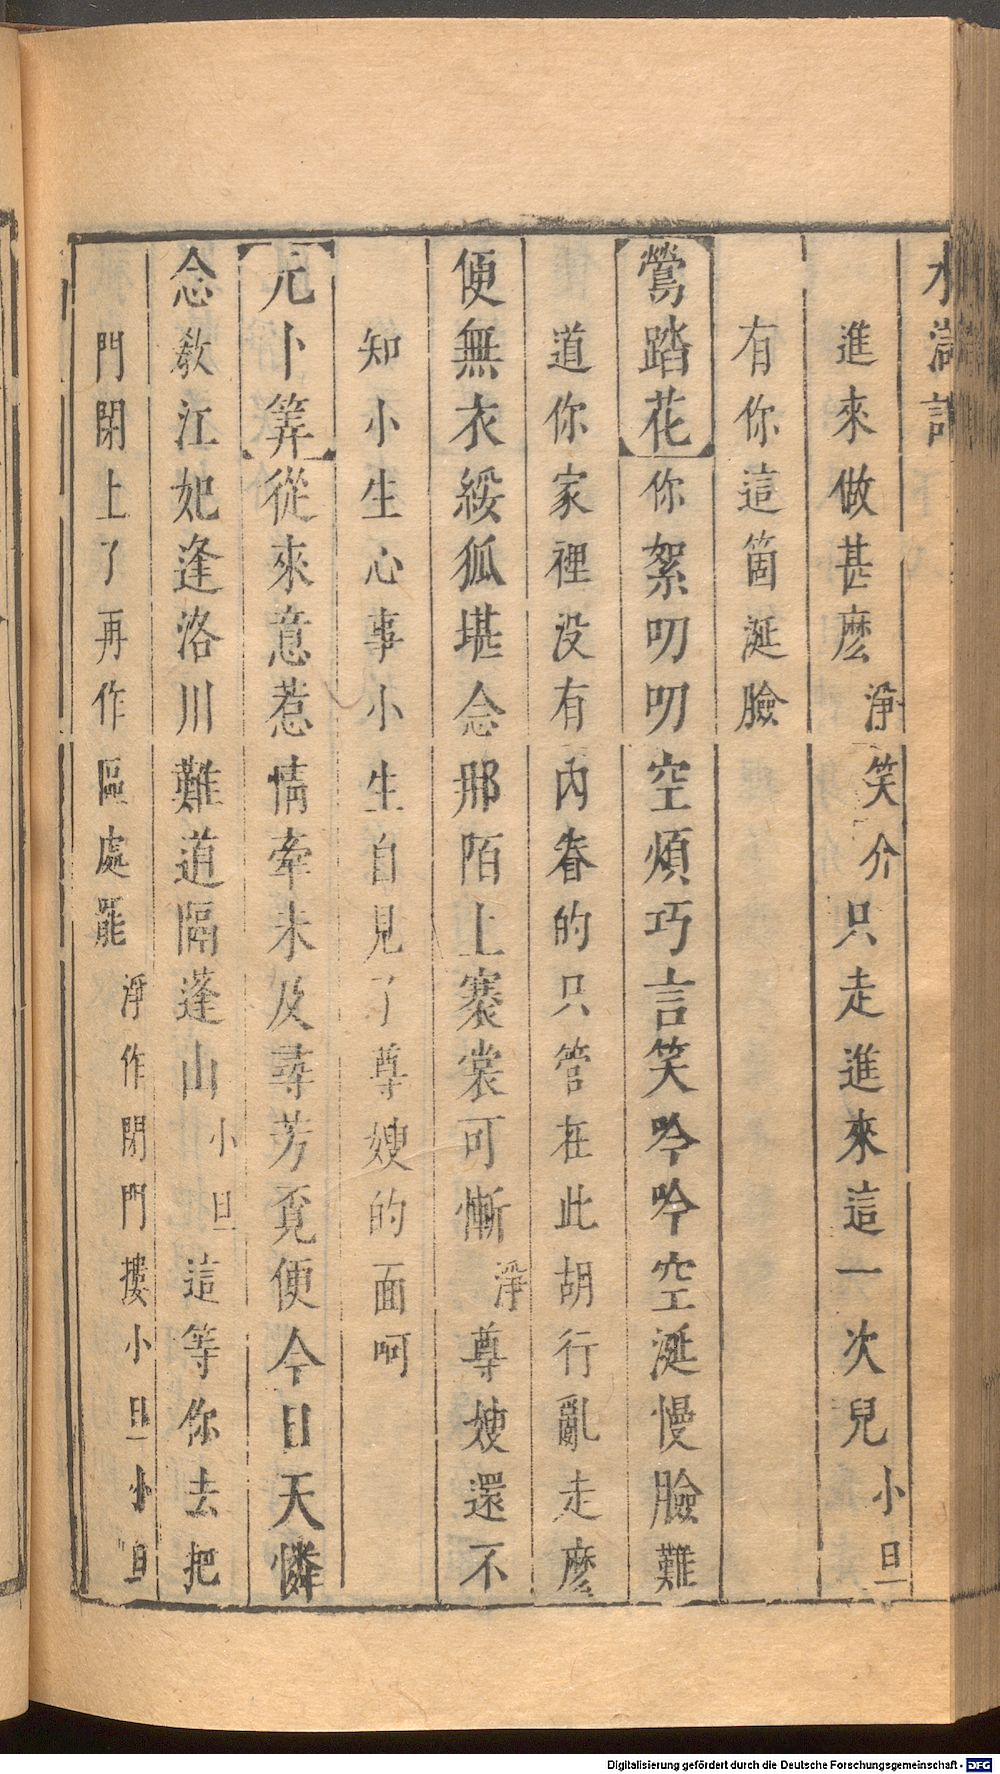 水滸記
進來做甚麽淨笑介只走進來這一次兒小旦
有你這箇涎臉
鶯踏花你絮叨叨空煩巧言笑吟吟空涎慢臉難
道你家裡没有內眷的只管在此胡行亂走麽
便無衣綏狐堪念那陌上褰裳可慚淨尊嫂還不
知小生心事小生自見了尊嫂的面呵
元卜筭從來意惹情牽未及尋芳覔便今日天憐
念敎江妃逢洛川難道隔蓬山小旦這等你去把
門閉上了再作區處罷淨作閉門摟小旦小旦
Digitalisierung gefördert durch die Deutsche Forschungsgemeinschaft - DFG